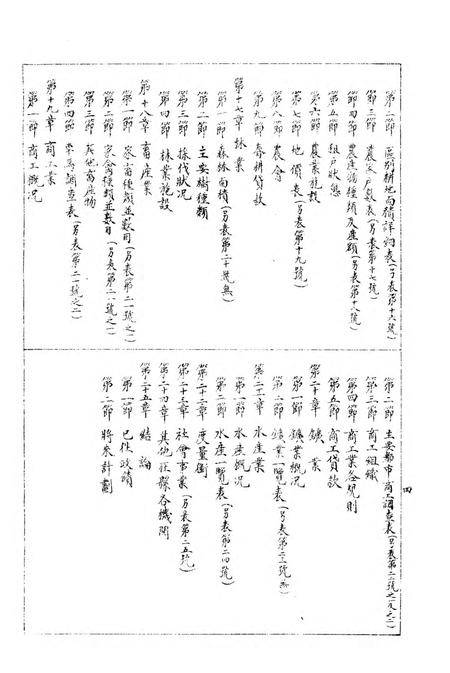 第二節 區別耕地面積詳細表(另表第十六號)
第三節 農家戶數表(另表第十七號)
第四節 農產物種類及產額(另表第十八號)
第五節 組戶狀態
第六節 農業施設
第七節 地價表(另表第十九號)
第八節 農會
第九節 春耕貸款
第十七章 林業
第一節 森林面積(另表第二十號無)
第二節 主要樹種類
第三節 採伐狀況
第四節 林業施設
第十八章 畜產業
第一節 家畜種類並數目(另表第二一號之一)
第二節 家禽種類並數目(另表第二一號之一)
第三節 其他畜產物
第四節 票馬調查表(另表第二一號之二)
第十九章 商工業
第一節 商工概況
第二節 主要都市商工調查表(另表第二二號之一及之二)
第三節 商工組織
第四節 商工業各規則
第五節 商工貸款
第二十章 鑛業
第一節 鑛業概況
第二節 鑛業一覽表(另表第二三號無)
第二一章 水產業
第一節 水產概況
第二節 水產一覽表(另表第二四號)
第二十二章 度量衡
第二十三章 社會事業(另表第二五號)
第二十四章 其他駐縣各機關
第二十五章 結論
第一節 已往政績
第二節 將來計劃
四